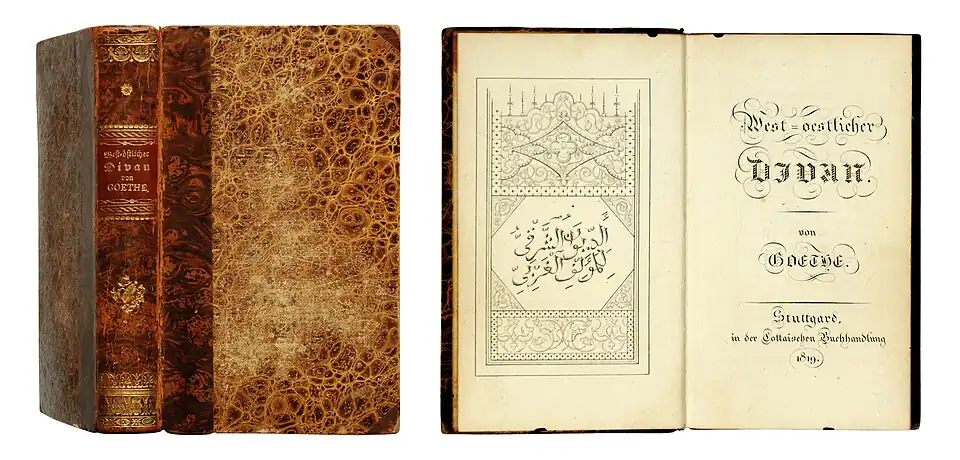 West-östlicher
Divan
von
GOETHE.
الديوان الشرقي
للمؤلف الغربي
West=oestlicher
DIVAN.
von
GOETHE.
Stuttgard,
in der Cottaischen Buchhandlung
1819.